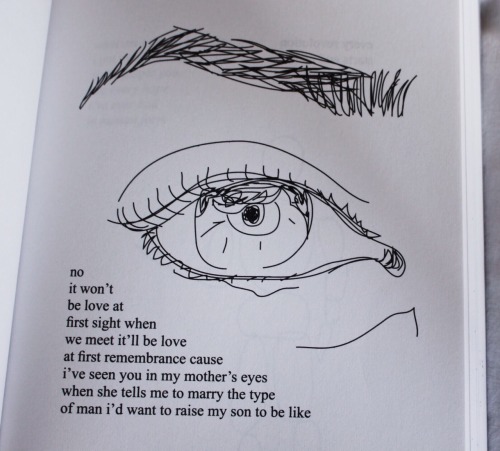 no
it won't
be love at
first sight when
we meet it'll be love
at first remembrance cause
i've seen you in my mother's eyes
when she tells me to marry the type
of man i'd want to raise my son to be like